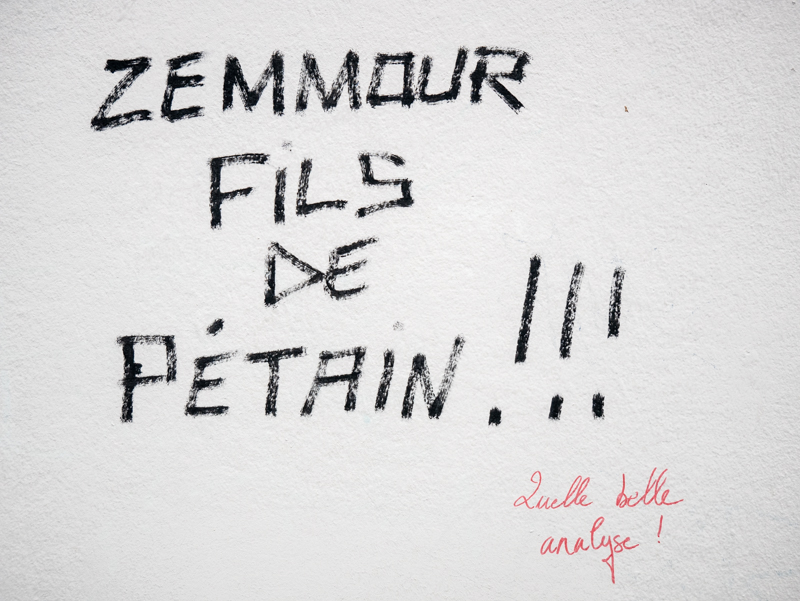 ZEMMOUR
FiLS
DE
PÉTAiN!!!
Quelle belle
analyse !